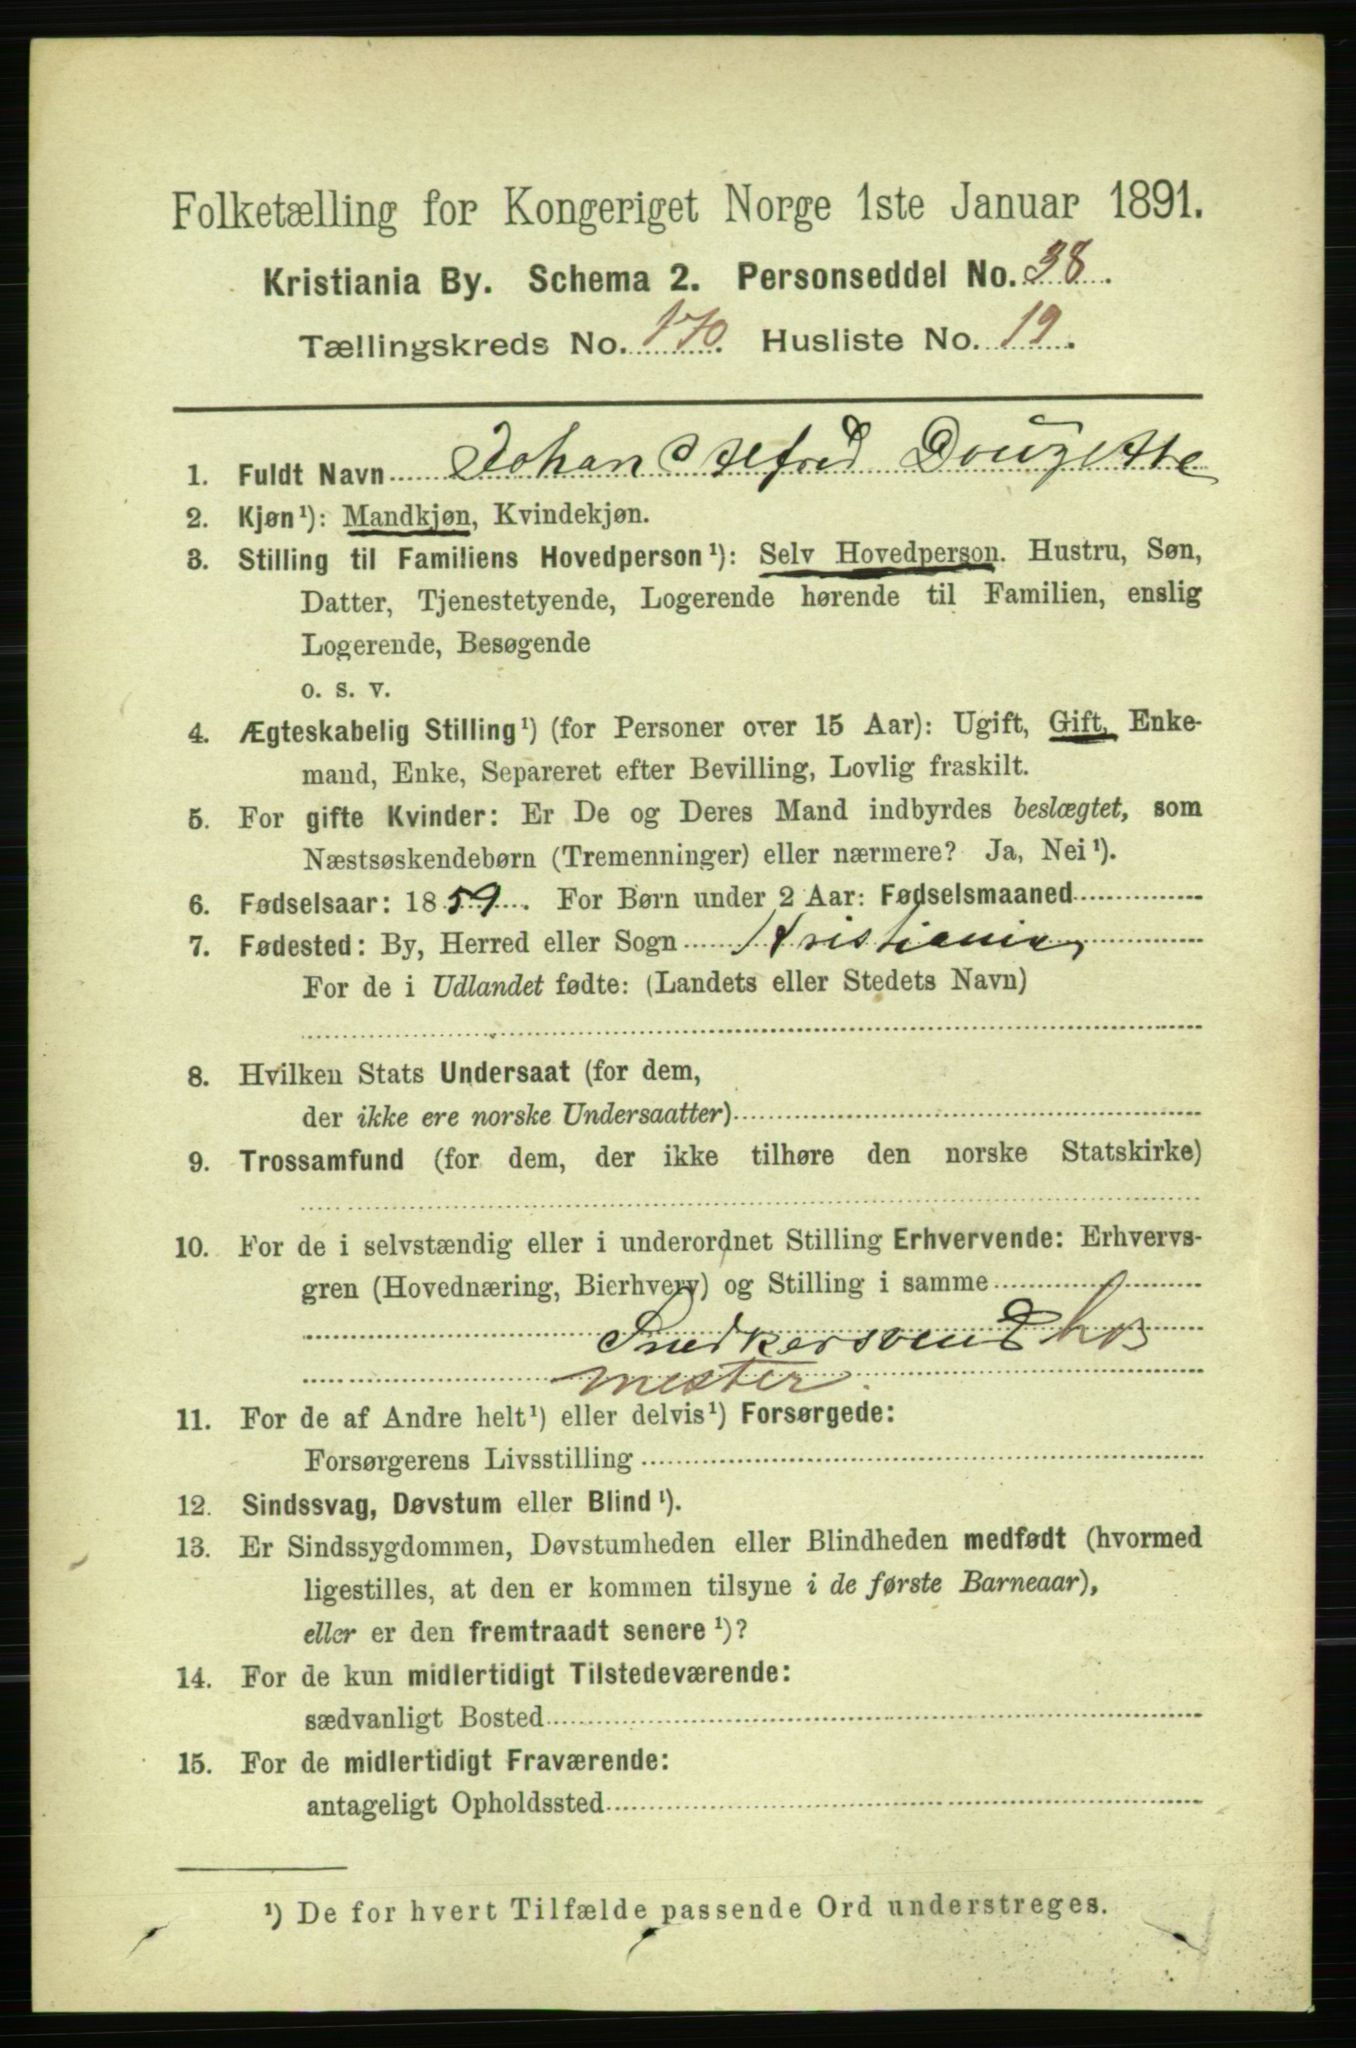 Folketælling for Kongeriget Norge 1ste Januar 1891.
Kristiania By. Schema 2. Personseddel No. 38.
Tællingskreds No. 170. Husliste No. 19.
1. Fuldt Navn Johan Alfred Douzette
2. Kjøn¹): Mandkjøn, Kvindekjøn.
3. Stilling til Familiens Hovedperson¹): Selv Hovedperson. Hustru, Søn,
Datter, Tjenestetyende, Logerende hørende til Familien, enslig
Logerende, Besøgende
o. s. v.
4. Ægteskabelig Stilling¹) (for Personer over 15 Aar): Ugift, Gift, Enke-
mand, Enke, Separeret efter Bevilling, Lovlig fraskilt.
5. For gifte Kvinder: Er De og Deres Mand indbyrdes beslægtet, som
Næstsøskendebørn (Tremenninger) eller nærmere? Ja, Nei¹).
6. Fødselsaar: 1859. For Børn under 2 Aar: Fødselsmaaned
7. Fødested: By, Herred eller Sogn Kristiania
For de i Udlandet fødte: (Landets eller Stedets Navn)
8. Hvilken Stats Undersaat (for dem,
der ikke ere norske Undersaatter)
9. Trossamfund (for dem, der ikke tilhøre den norske Statskirke)
10. For de i selvstændig eller i underordnet Stilling Erhvervende: Erhvervs-
gren (Hovednæring, Bierhverv) og Stilling i samme
Snedkersvend hos
mester.
11. For de af Andre helt¹) eller delvis¹) Forsørgede:
Forsørgerens Livsstilling
12. Sindssvag, Døvstum eller Blind¹).
13. Er Sindssygdommen, Døvstumheden eller Blindheden medfødt (hvormed
ligestilles, at den er kommen tilsyne i de første Barneaar),
eller er den fremtraadt senere¹)?
14. For de kun midlertidigt Tilstedeværende:
sædvanligt Bosted
15. For de midlertidigt Fraværende:
antageligt Opholdssted
¹) De for hvert Tilfælde passende Ord understreges.